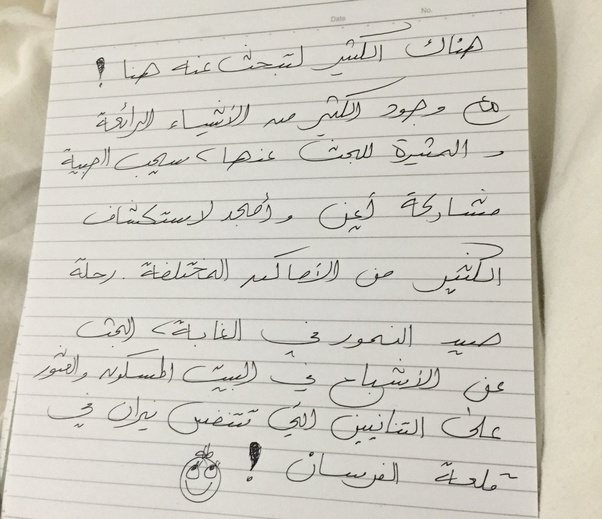 Date
No.
هناك الكثير لتبحث عنه هنا !
مع وجود الكثير من الأشياء الرائعة
و المثيرة للبحث عنها، سيحب الصبية
مشاركة أيمن و أمجد لاستكشاف
الكثير من الأماكن المختلفة. رحلة
صيد النمور في الغابة، البحث
عن الأشباح في البيت المسكون والعثور
على التنانين التي تتنفس نيران في
قلعة الفرسان !